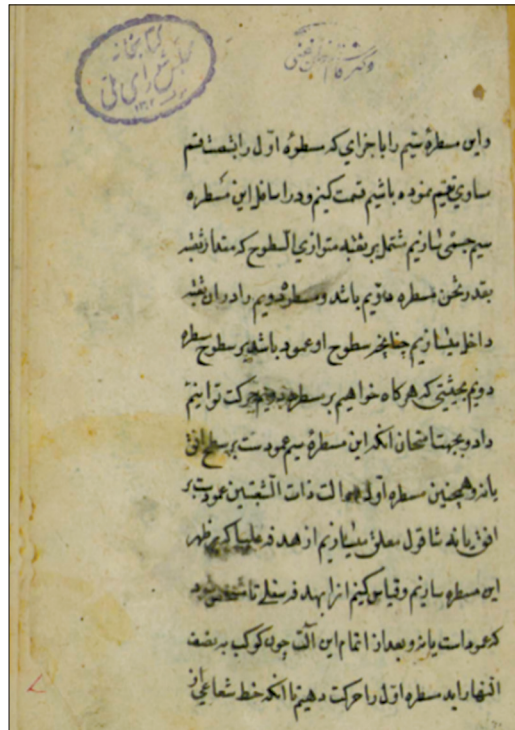 کتابخانه
مجلس شورای ملی
۱۳۰۲
و این مسطرهٔ سیم را باجزای که مسطرهٔ اول را بشصت قسم
مساوی تقسیم نموده باشیم قسمت کنیم و در اسافل این مسطره
سیم جسمی سازیم مشتمل بر ثقبه متوازی السطوح که مقدار ثقبه
بقدر ثخن مسطره دویم باشد و مسطره دویم را در ان ثقبه
داخل میسازیم چنانچه سطوح او عمود باشد بر سطوح مسطره
دویم بحیثیتی که هرکاه خواهیم بر مسطره دویم حرکت توانیم
داد و بجهت امتحان انکه این مسطرهٔ سیم عمودست بر سطح افق
یا نه و همچنین مسطره اول الت ذات الثقبتین عمودست بر
افق یا نه شاقول معلق میسازیم از هدفه علیا که بر ظهر
این مسطره سازیم و قیاس کنیم انرا بهدفه سفلی تا مشخص شود
که عمود است یا نه و بعد از اتمام این آلت چون کوکب به نصف
النهار اید مسطره اول را حرکت دهیم تا انکه خط شعاعی از